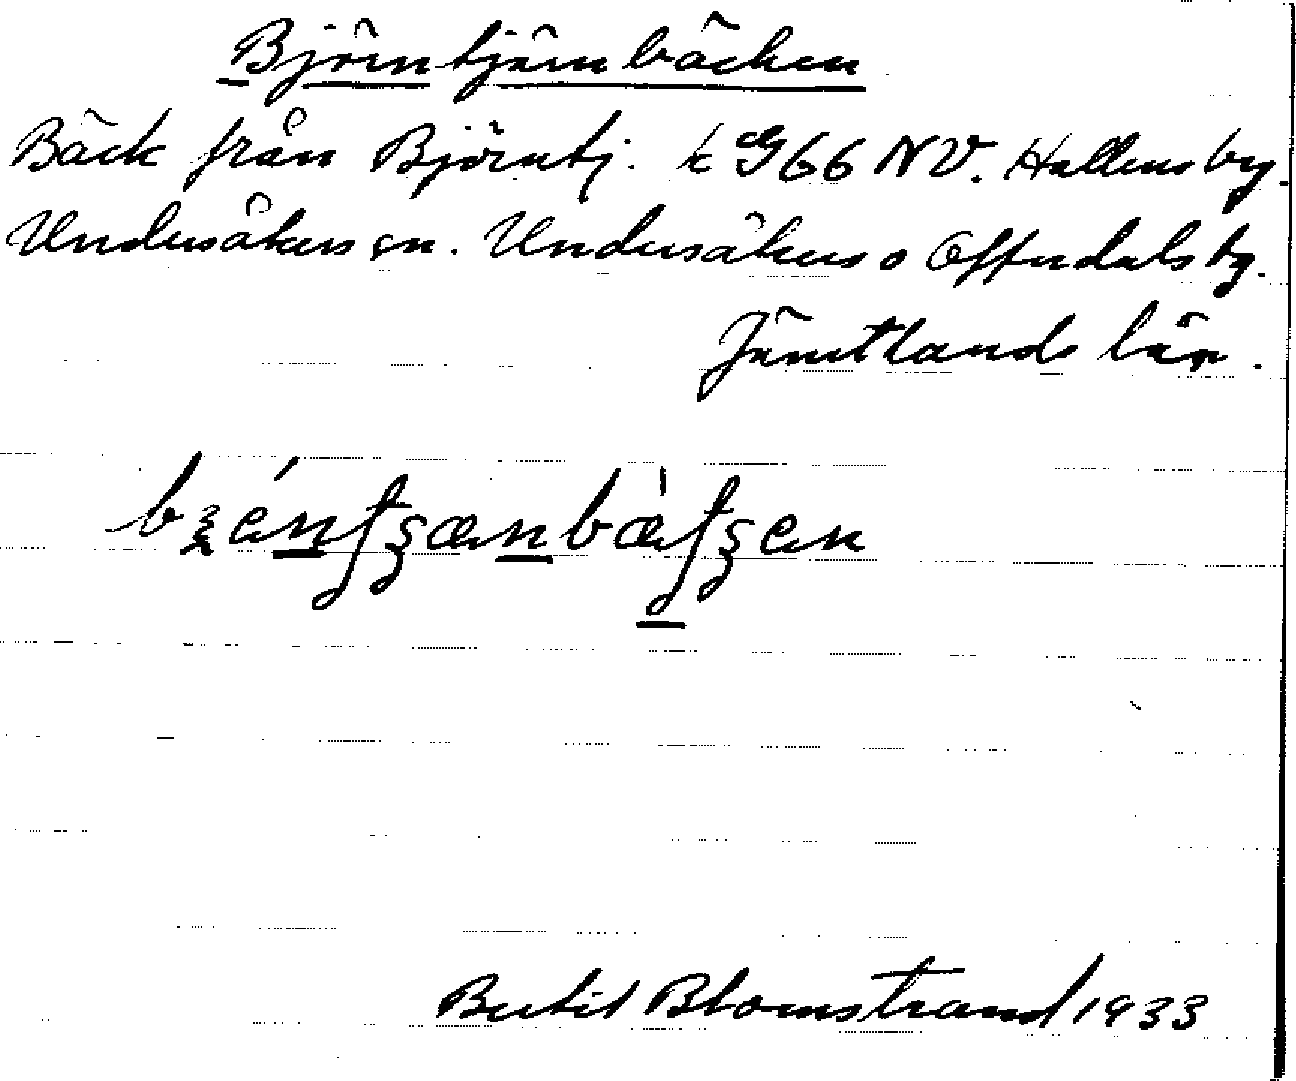 Björntjärnbäcken
Bäck från Björntj. t G66 NV. Hallens by.
Undersåkers sn. Undersåkers o Offerdals tg.
Jämtlands län.
Bertil Blomstrand 1933